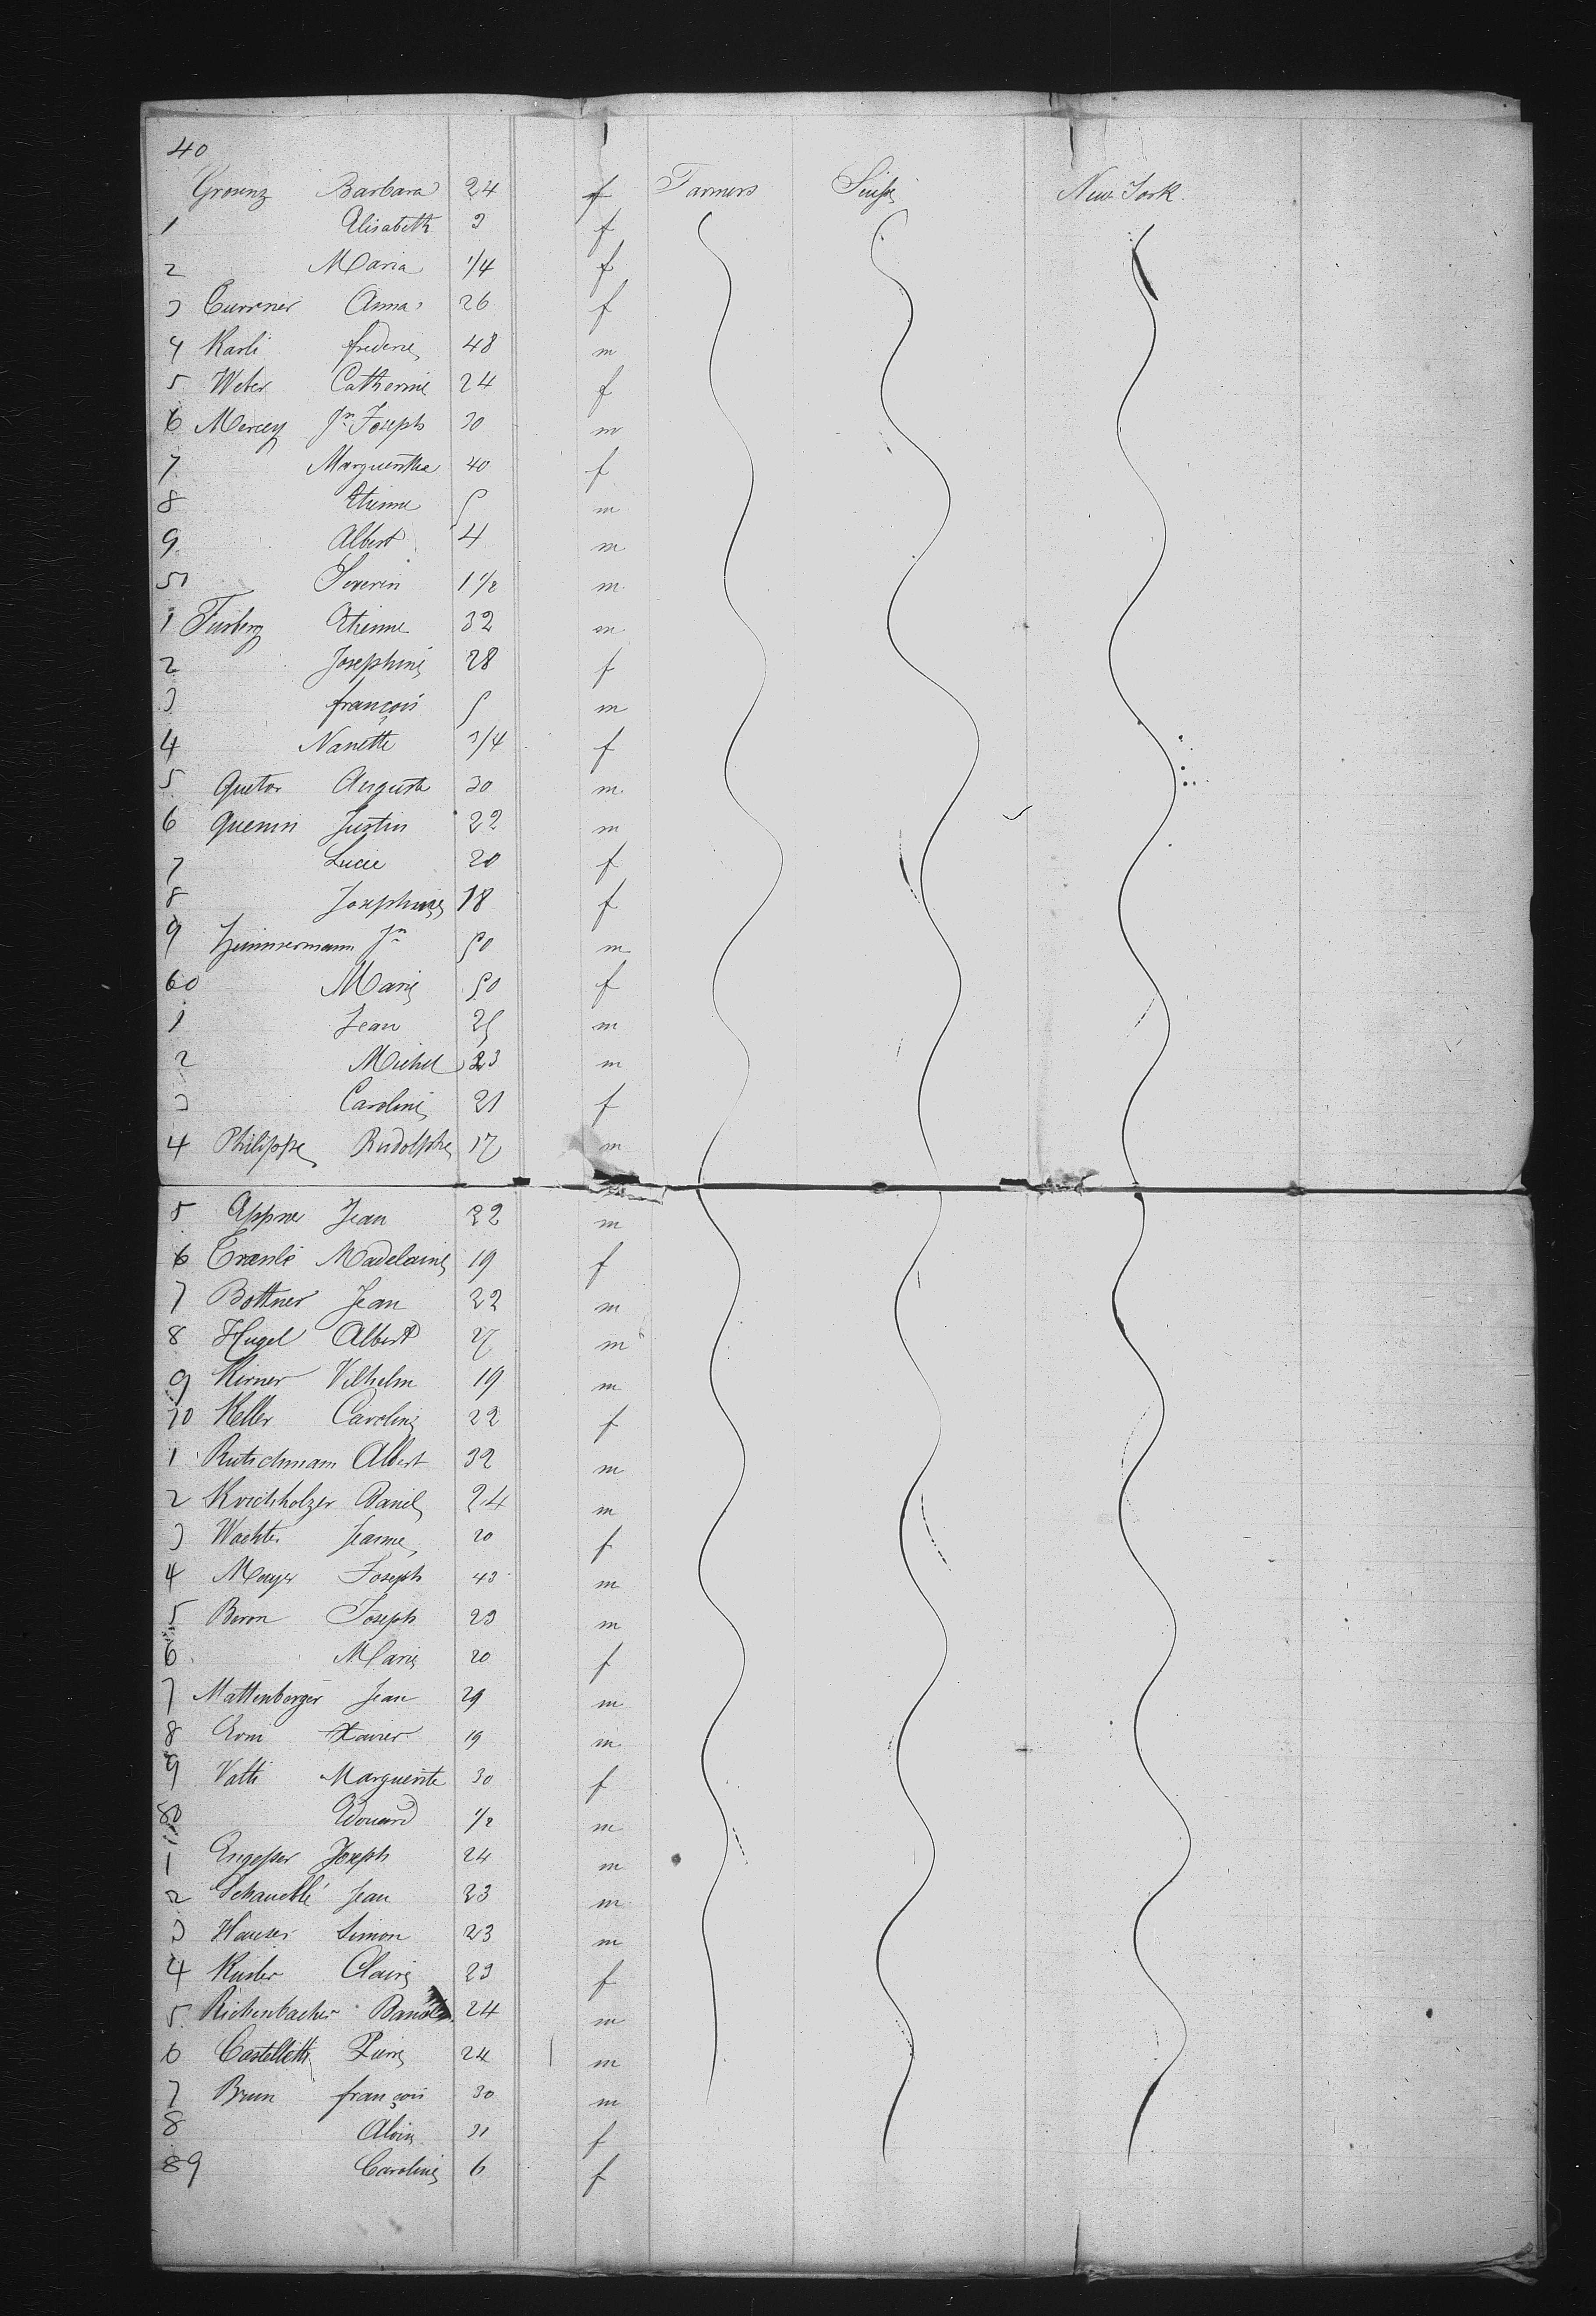 40
Grounz Barbara 24 f Farmers Suisse New York
1 Elisabeth 3 f
2 Maria 1/4 f
3 Currner Anna 26 f
4 Karli frederic 48 m
5 Weber Catherine 24 f
6 Mercey Jn Joseph 30 m
7 Marguerithe 40 f
8 Etienne 5 m
9 Albert 4 m
50 Severin 1 1/2 m
1 Etienne 32 m
2 Josephine 28 f
3 françois 5 m
4 Nanette 3/4 f
5 Quetor Auguste 30 m
6 Quenin Justin 22 m
7 Lucie 20 f
8 Josephine 18 f
9 Zimmermann Jn 50 m
60 Marie 50 f
1 Jean 25 m
2 Michel 23 m
3 Caroline 21 f
4 Philippe Rudolphe 17 m
5 Appner Jean 22 m
6 Madelaine 19 f
7 Bottner Jean 22 m
8 Hugel Albert 27 m
9 Kirner Vilhelm 19 m
70 Keller Caroline 22 f
1 Rutschmann Albert 32 m
2 Kreichholzer Daniel 24 m
3 Wachter Jeanne 20 f
4 Mayer Joseph 43 m
5 Beron Joseph 23 m
6 Marie 20 f
7 Mattenberger Jean 29 m
8 Erni Xavier 19 m
9 Vatti Marguerite 30 f
80 Edouard 1/2 m
1 Engesser Joseph 24 m
2 Schaueblé Jean 23 m
3 Hauser Simon 23 m
4 Kusler Claire 23 f
5 Richenbacher 24 m
6 Castelletti Pierre 24 m
7 Brun françois 30 m
8 31 f
89 Caroline 6 f